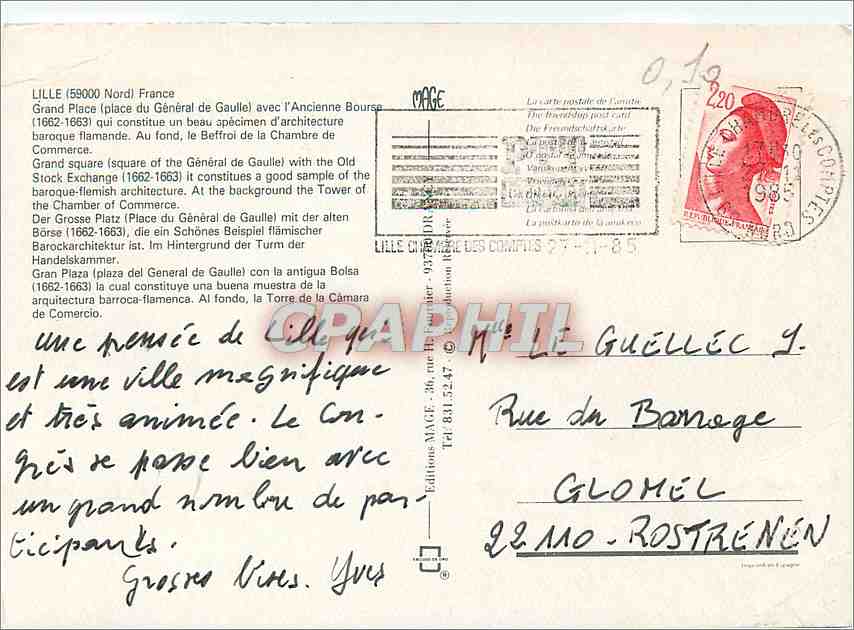 LILLE (59000 Nord) France
Grand Place (place du Général de Gaulle) avec l'Ancienne Bourse
(1662-1663) qui constitue un beau spécimen d'architecture
baroque flamande. Au fond, le Beffroi de la Chambre de
Commerce.
Grand square (square of the Général de Gaulle) with the Old
Stock Exchange (1662-1663) it constitues a good sample of the
baroque-flemish architecture. At the background the Tower of
the Chamber of Commerce.
Der Grosse Platz (Place du Général de Gaulle) mit der alten
Börse (1662-1663), die ein Schönes Beispiel flämischer
Barockarchitektur ist. Im Hintergrund der Turm der
Handelskammer.
Gran Plaza (plaza del General de Gaulle) con la antigua Bolsa
(1662-1663) la cual constituye una buena muestra de la
arquitectura barroca-flamenca. Al fondo, la Torre de la Cámara
de Comercio.
une pensée de Lille qui
est une ville magnifique
et très animée. Le Con-
grès se passe bien avec
un grand nombre de par-
ticipants.
Grosses bises. Yves
MAGE
Editions MAGE - 36, rue H. Fournier - 93700 DRANCY
Tél: 831.52.47 - © Reproduction Réservée
La carte postale de l'amitié
The friendship post card
Die Freundschaftskarte
La postkarto de la amikeco
LILLE CHAMBRE DES COMPTES 27-11-85
0,19
2,20
REPUBLIQUE FRANÇAISE
LILLE CHAMBRE DES COMPTES
NORD
1985
CPAPHIL
Mlle LE GUELLEC Y.
Rue du Barrage
GLOMEL
22110 - ROSTRENEN
Imprimé en Espagne